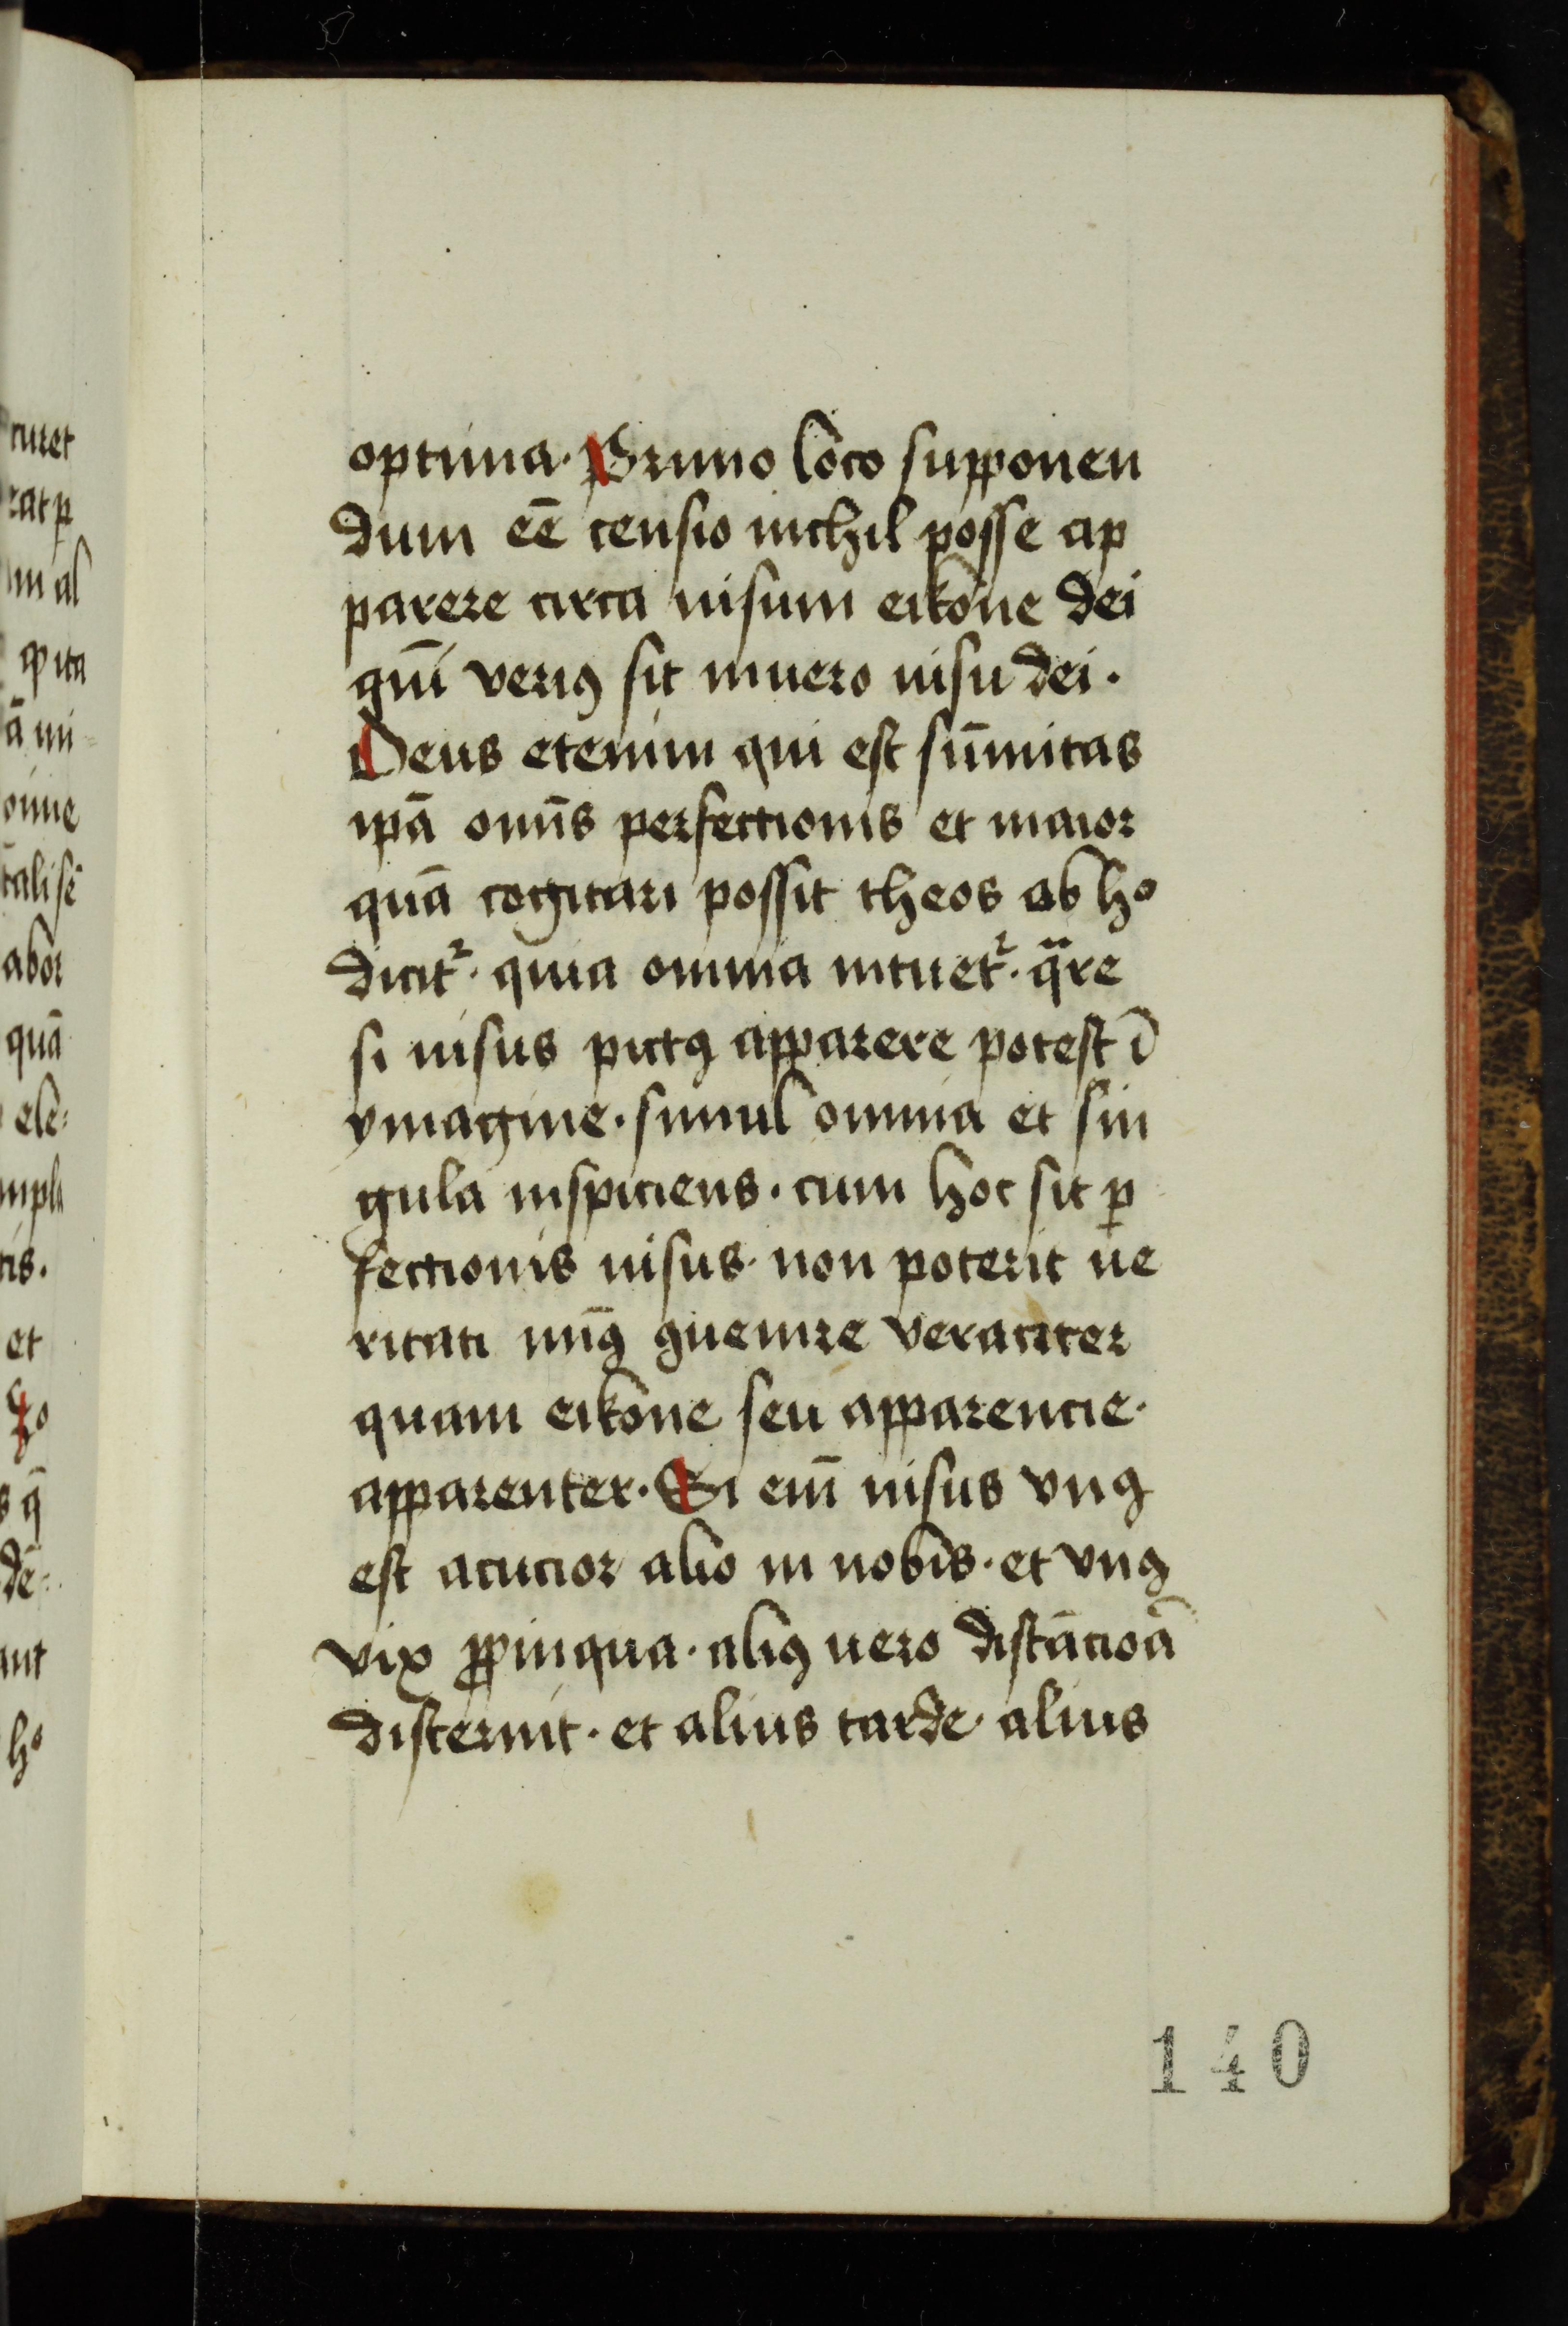 optima. Primo loco supponen
dum eē censio nichil posse ap
parere circa uisum eikone dei
qui͞n veriꝰ sit in uero uisu dei.
Deus etenim qui est sūmitas
ip̄a om̄s perfectionis et maior
quā cogitari possit theos ab hͦ
dicit᷑. quia omnia intuet᷑. q̈re
si uisus pictꝰ apparere potest ī
ymagine. simul omnia et sin
gula inspiciens. cum hoc sit ꝑ
fectionis uisus. non poterit ue
ritati minꝰ ꝯuenire veraciter
quam eikone seu apparencie.
apparenter. Si em̄ uisus vnꝰ
est acucior alio in nobis. et vnꝰ
vix ꝓpinqua. aliꝰ uero distācioā
discernit. et alius tarde. alius
140